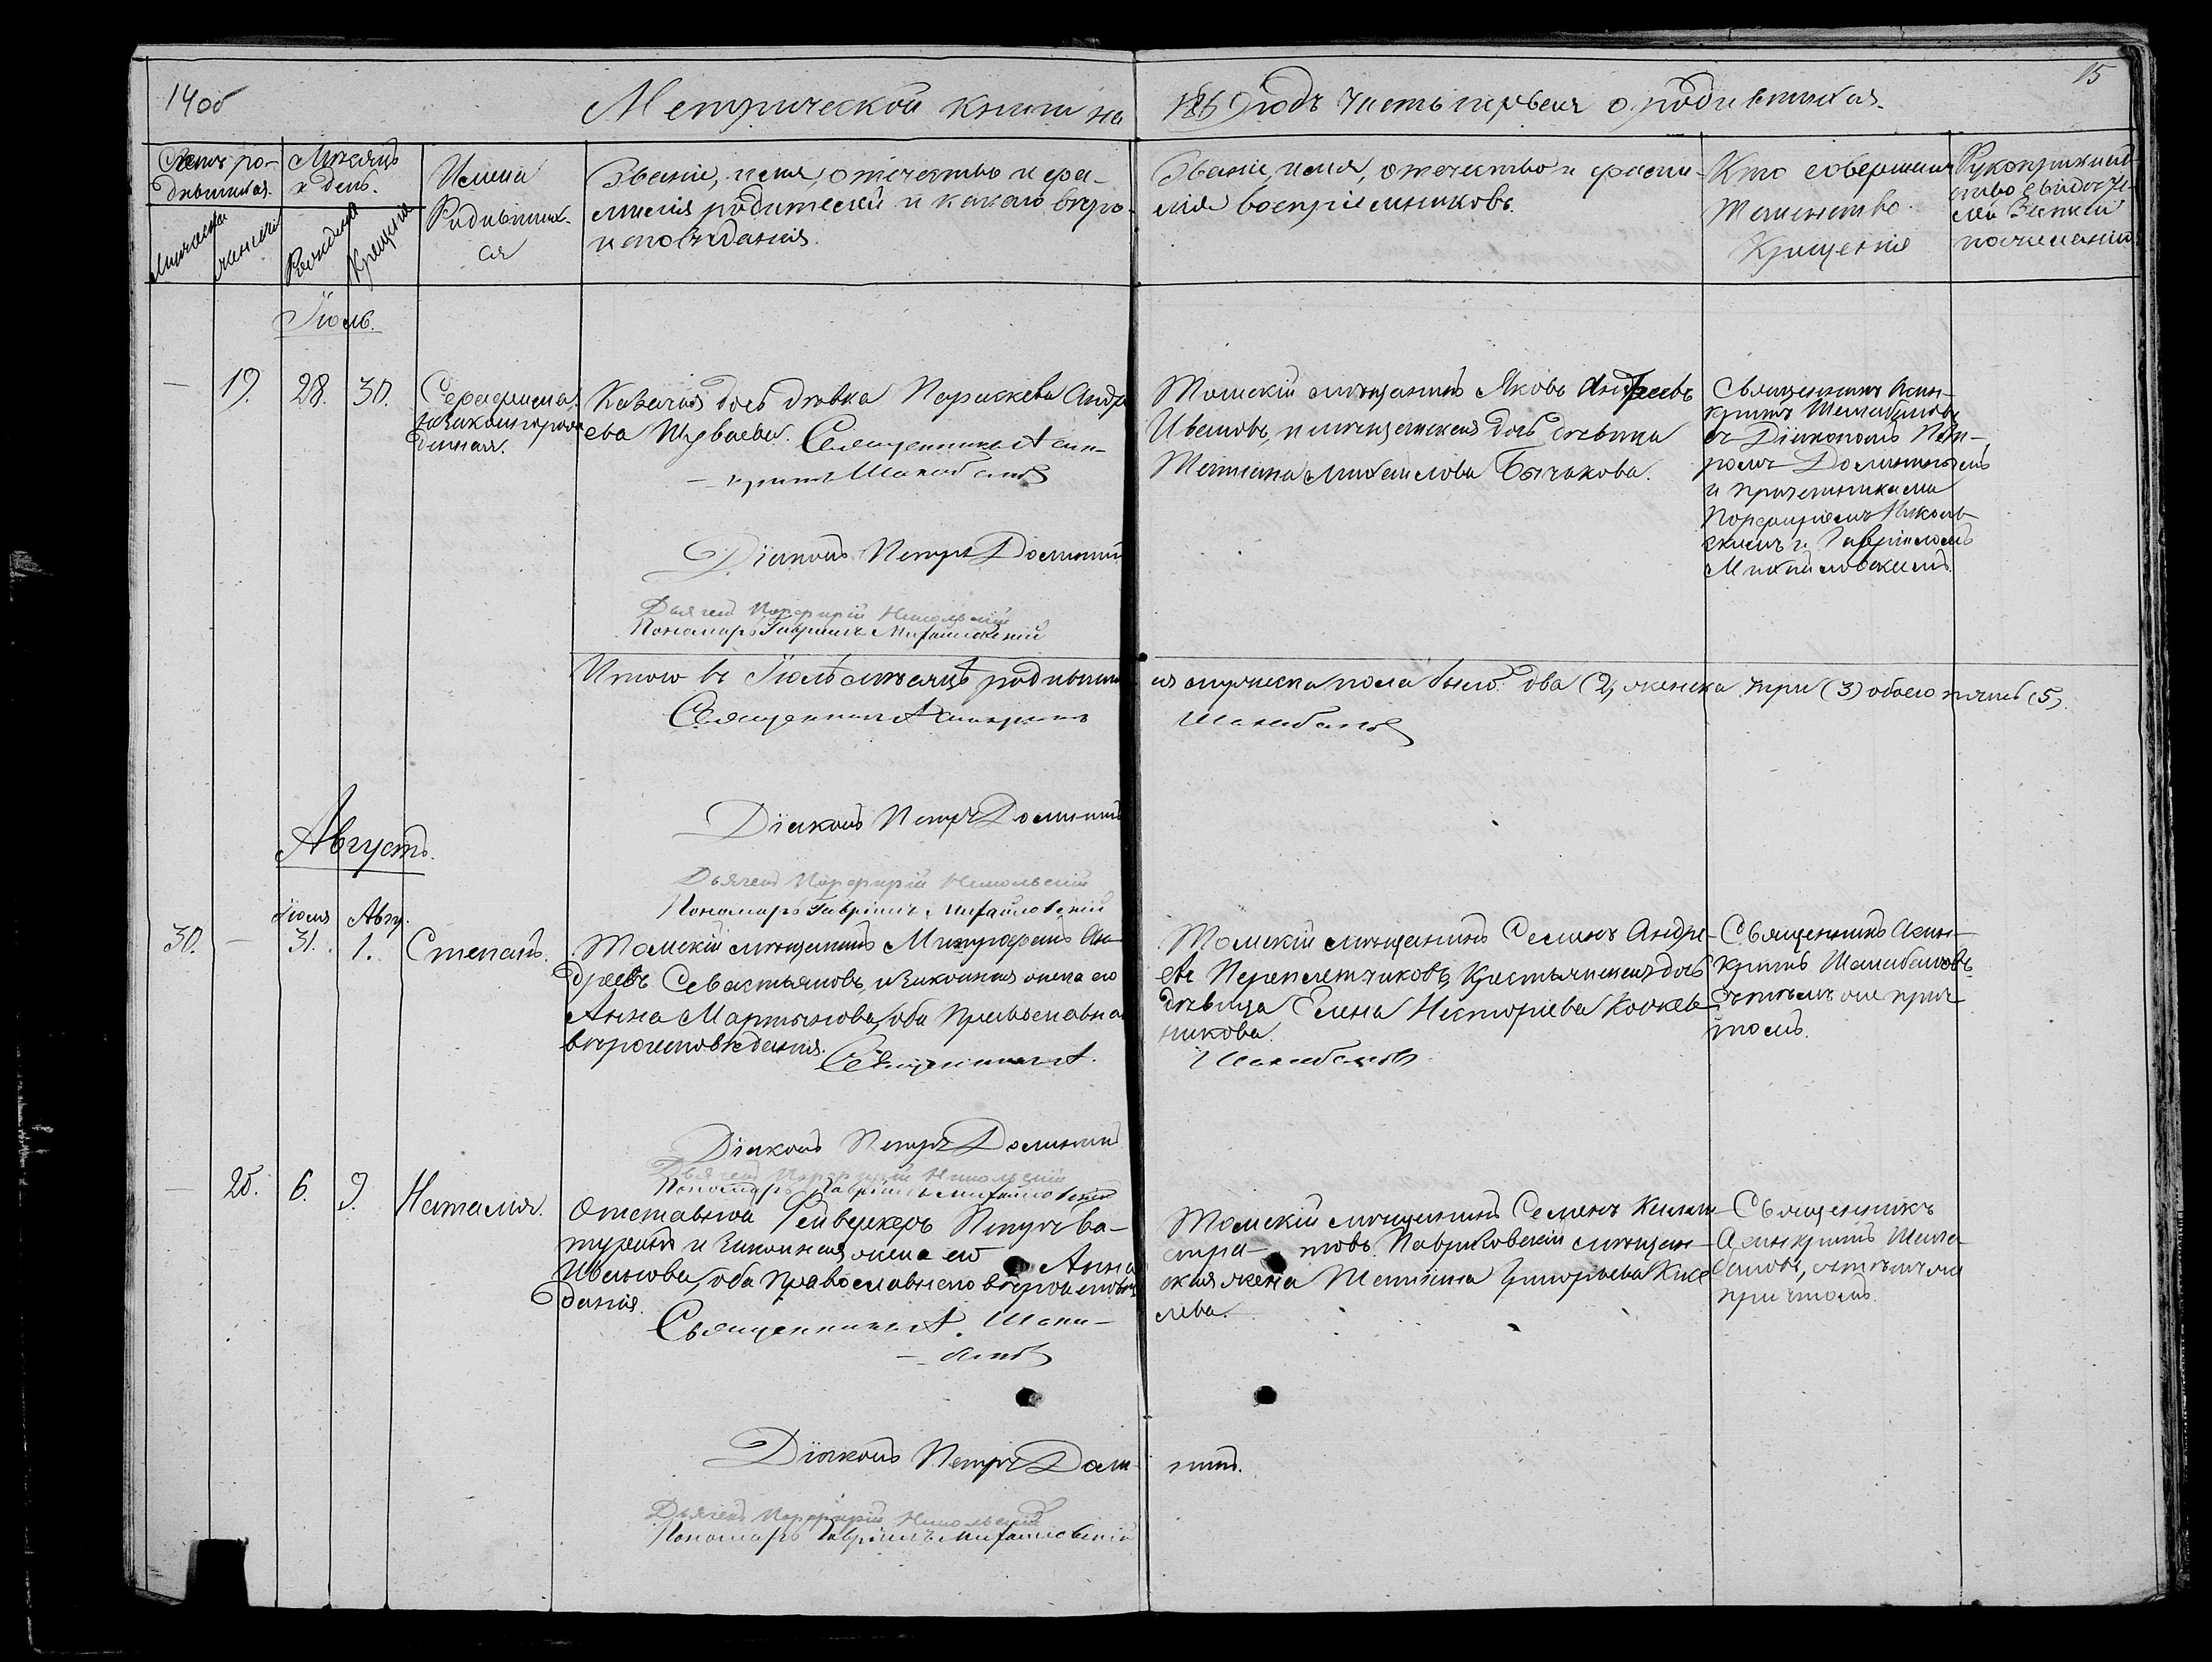 14об
15
Метрической книги на 1869 годъ часть первая о родившихся.
Счетъ ро-
дившихся.
Мужеска
женска
Мѣсяцъ
и день.
Рожденія
Крещенія
Имена
Родивших-
ся
Званіе, имя, отечество и фа-
милія родителей и какого вѣро-
исповѣданія.
Званіе, имя, отечество и фами-
лія воспріемниковъ.
Кто совершалъ
Таинство
Крещенія
Рукоприклад-
ство свидѣте-
лей записи
по желанію
Іюль.
— 19. 28. 30.
Серафима
незаконнорож
денная.
Казачья дочь дѣвка Параскева Андре
ева Священникъ Асин-
критъ Шалабановъ
Діаконъ Петръ Домининъ
Дьячекъ Порфирій Никольскій
Пономарь Гавріилъ Михайловскій
Томскій мѣщанинъ Яковъ Андреевъ
Ивановъ, и мѣщанская дочь дѣвица
Татіана Михаилова Бычкова.
Священникъ Асин-
критъ Шалабановъ
съ Діакономъ Пет-
ромъ Доминнымъ
и причетниками
Порфиріемъ Николь-
скимъ и Гавріиломъ
Михайловскимъ.
Итого въ Іюлѣ мѣсяцѣ родивших
ся мужеска пола было два (2), женска три (3) обоего пять (5).
Священникъ Асинкритъ Шалабановъ
Діаконъ Петръ Домининъ
Дьячекъ Порфирій Никольскій
Пономарь Гавріилъ Михайловскій
Августъ.
Іюля Авгу.
30. — 31. 1. Степанъ.
Томскій мѣщанинъ Митрофанъ Ан-
дреевъ Севастьяновъ, и законная жена его
Анна Мартынова, оба православнаго
вѣроисповѣданія.
Священникъ А. Шалабановъ
Діаконъ Петръ Домининъ
Дьячекъ Порфирій Никольскій
Пономарь Гавріилъ Михайловскій
Томскій мѣщанинъ Семенъ Андре-
евъ Переплетчиковъ, Крестьянская дочь
дѣвица Елена Несторіева
никова.
Священникъ Асин-
критъ Шалабановъ
съ тѣмъ же прич-
томъ.
— 20. 6. 9. Наталія.
Отставной Гейверкеръ Петръ Ба-
туринъ и законная жена его Анна
Иванова, оба православнаго вѣроисповѣ
данія.
Священникъ А. Шала-
бановъ
Діаконъ Петръ Доми-
нинъ.
Дьячекъ Порфирій Никольскій
Пономарь Гавріилъ Михайловскій
Томскій мѣщанинъ Семенъ Калли-
стратовъ. мѣщан-
ская жена Татіана Григорьева Кисе
лева.
Священникъ
Асинкритъ Шала-
бановъ, съ тѣмъ же
причтомъ.